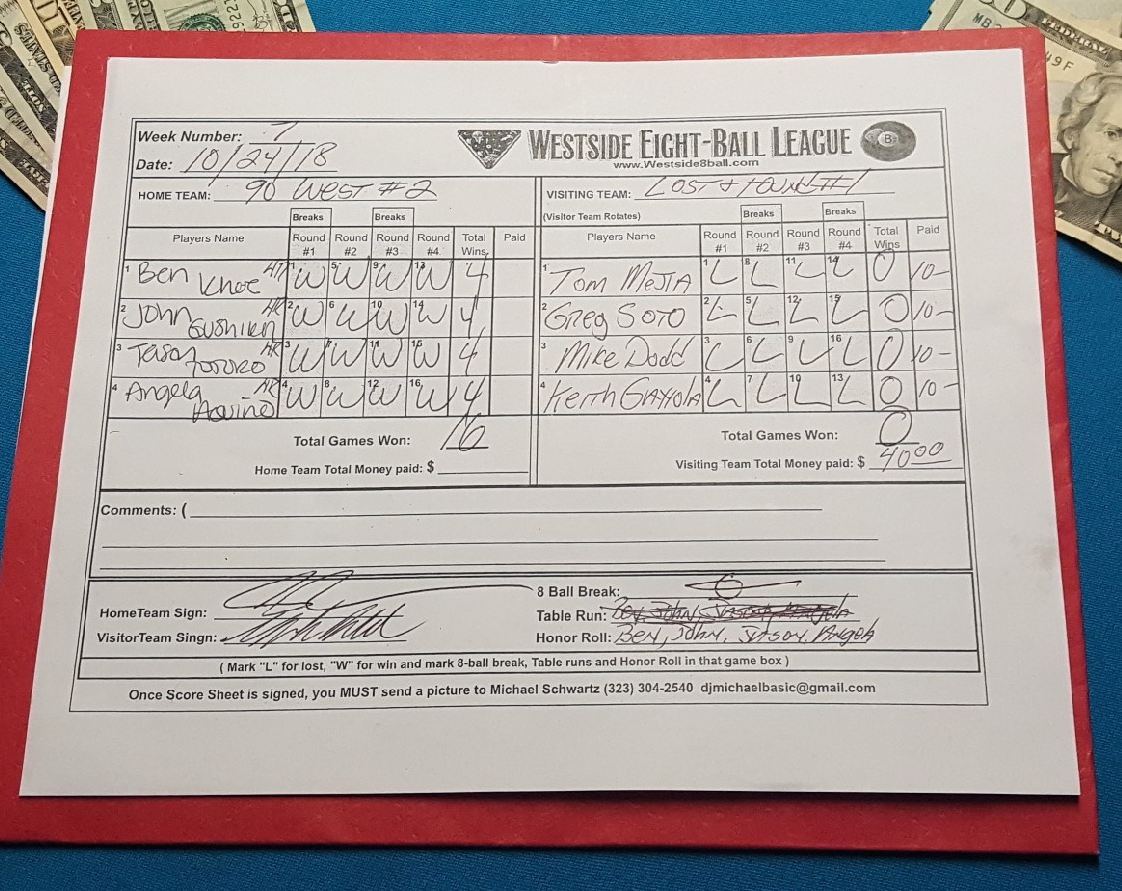 Week Number: 7
WESTSIDE EIGHT-BALL LEAGUE
www.Westside8ball.com
Date: 10/24/18
HOME TEAM: 90 WEST #2
VISITING TEAM: LOST & FOUND #1
(Visitor Team Rotates)
Breaks Breaks Breaks Breaks
Players Name Round #1 Round #2 Round #3 Round #4 Total Wins Paid
Players Name Round #1 Round #2 Round #3 Round #4 Total Wins Paid
1 Ben HR 1 W 5 W 9 W 13 W 4
1 TOM MEJIA 1 L 8 L 11 L 14 L 0 10-
2 John HR 2 W 6 W 10 W 14 W 4
2 Greg SOTO 2 L 5 L 12 L 15 L 0 10-
3 HR 3 W 7 W 11 W 15 W 4
3 Mike Dodd 3 L 6 L 9 L 16 L 0 10-
4 Angela HR 4 W 8 W 12 W 16 W 4
4 Keith 4 L 7 L 10 L 13 L 0 10-
Total Games Won: 16
Total Games Won: 0
Home Team Total Money paid: $
Visiting Team Total Money paid: $ 40.00
Comments: (
8 Ball Break:
HomeTeam Sign:
Table Run:
VisitorTeam Singn:
Honor Roll: Ben, John, Jason, Angela
( Mark "L" for lost, "W" for win and mark 8-ball break, Table runs and Honor Roll in that game box )
Once Score Sheet is signed, you MUST send a picture to Michael Schwartz (323) 304-2540 djmichaelbasic@gmail.com